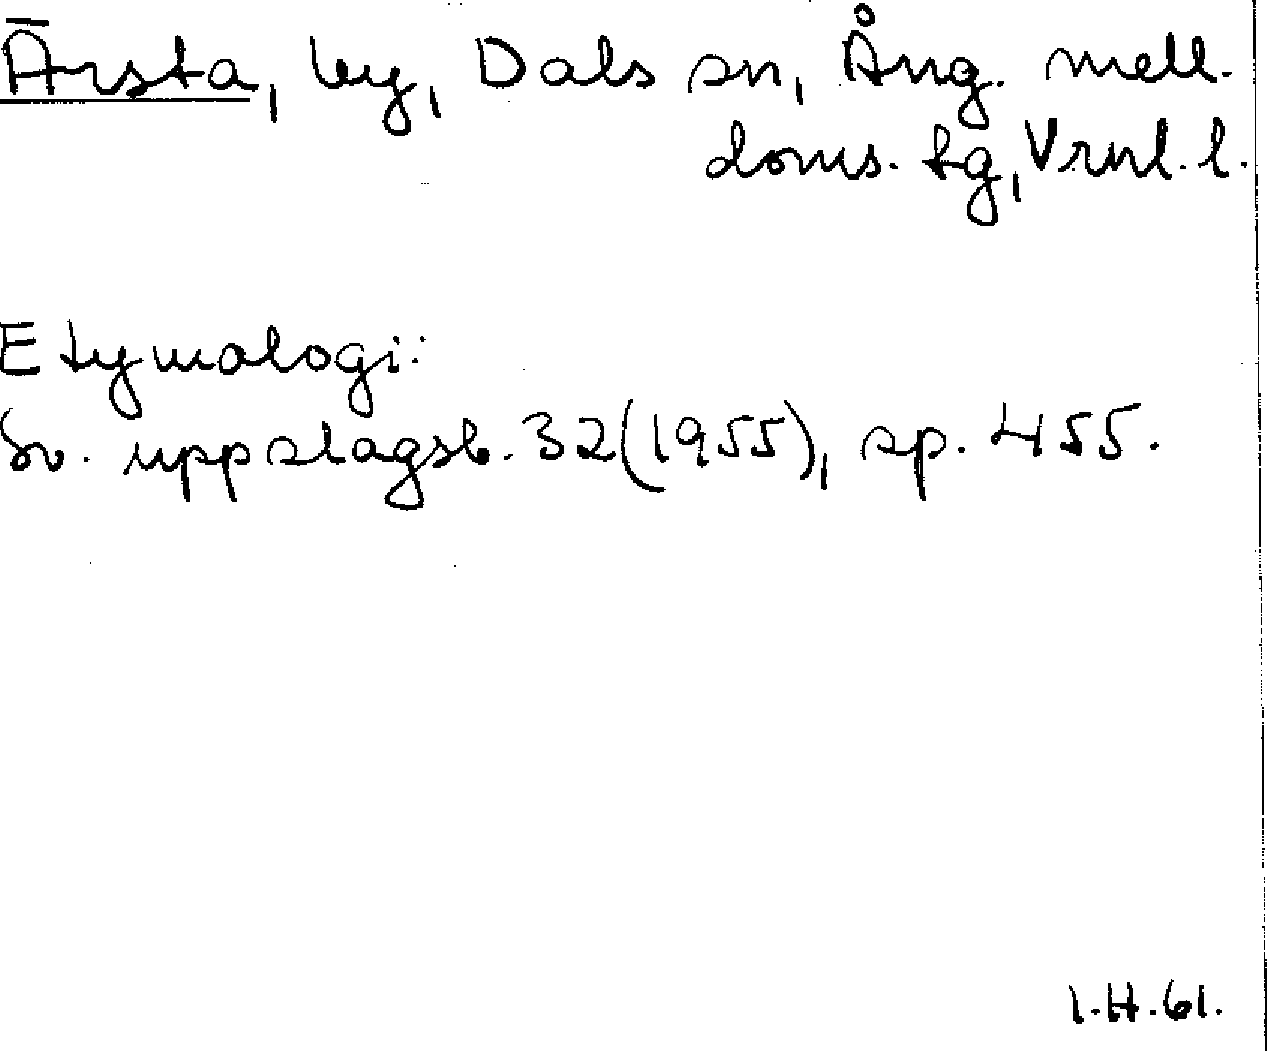 Ärsta, by, Dals sn, Ång. mell.
doms. tg, Vrnl. l.
Etymologi:
Sv. uppslagsb. 32(1955), sp. 455.
I.H.61.